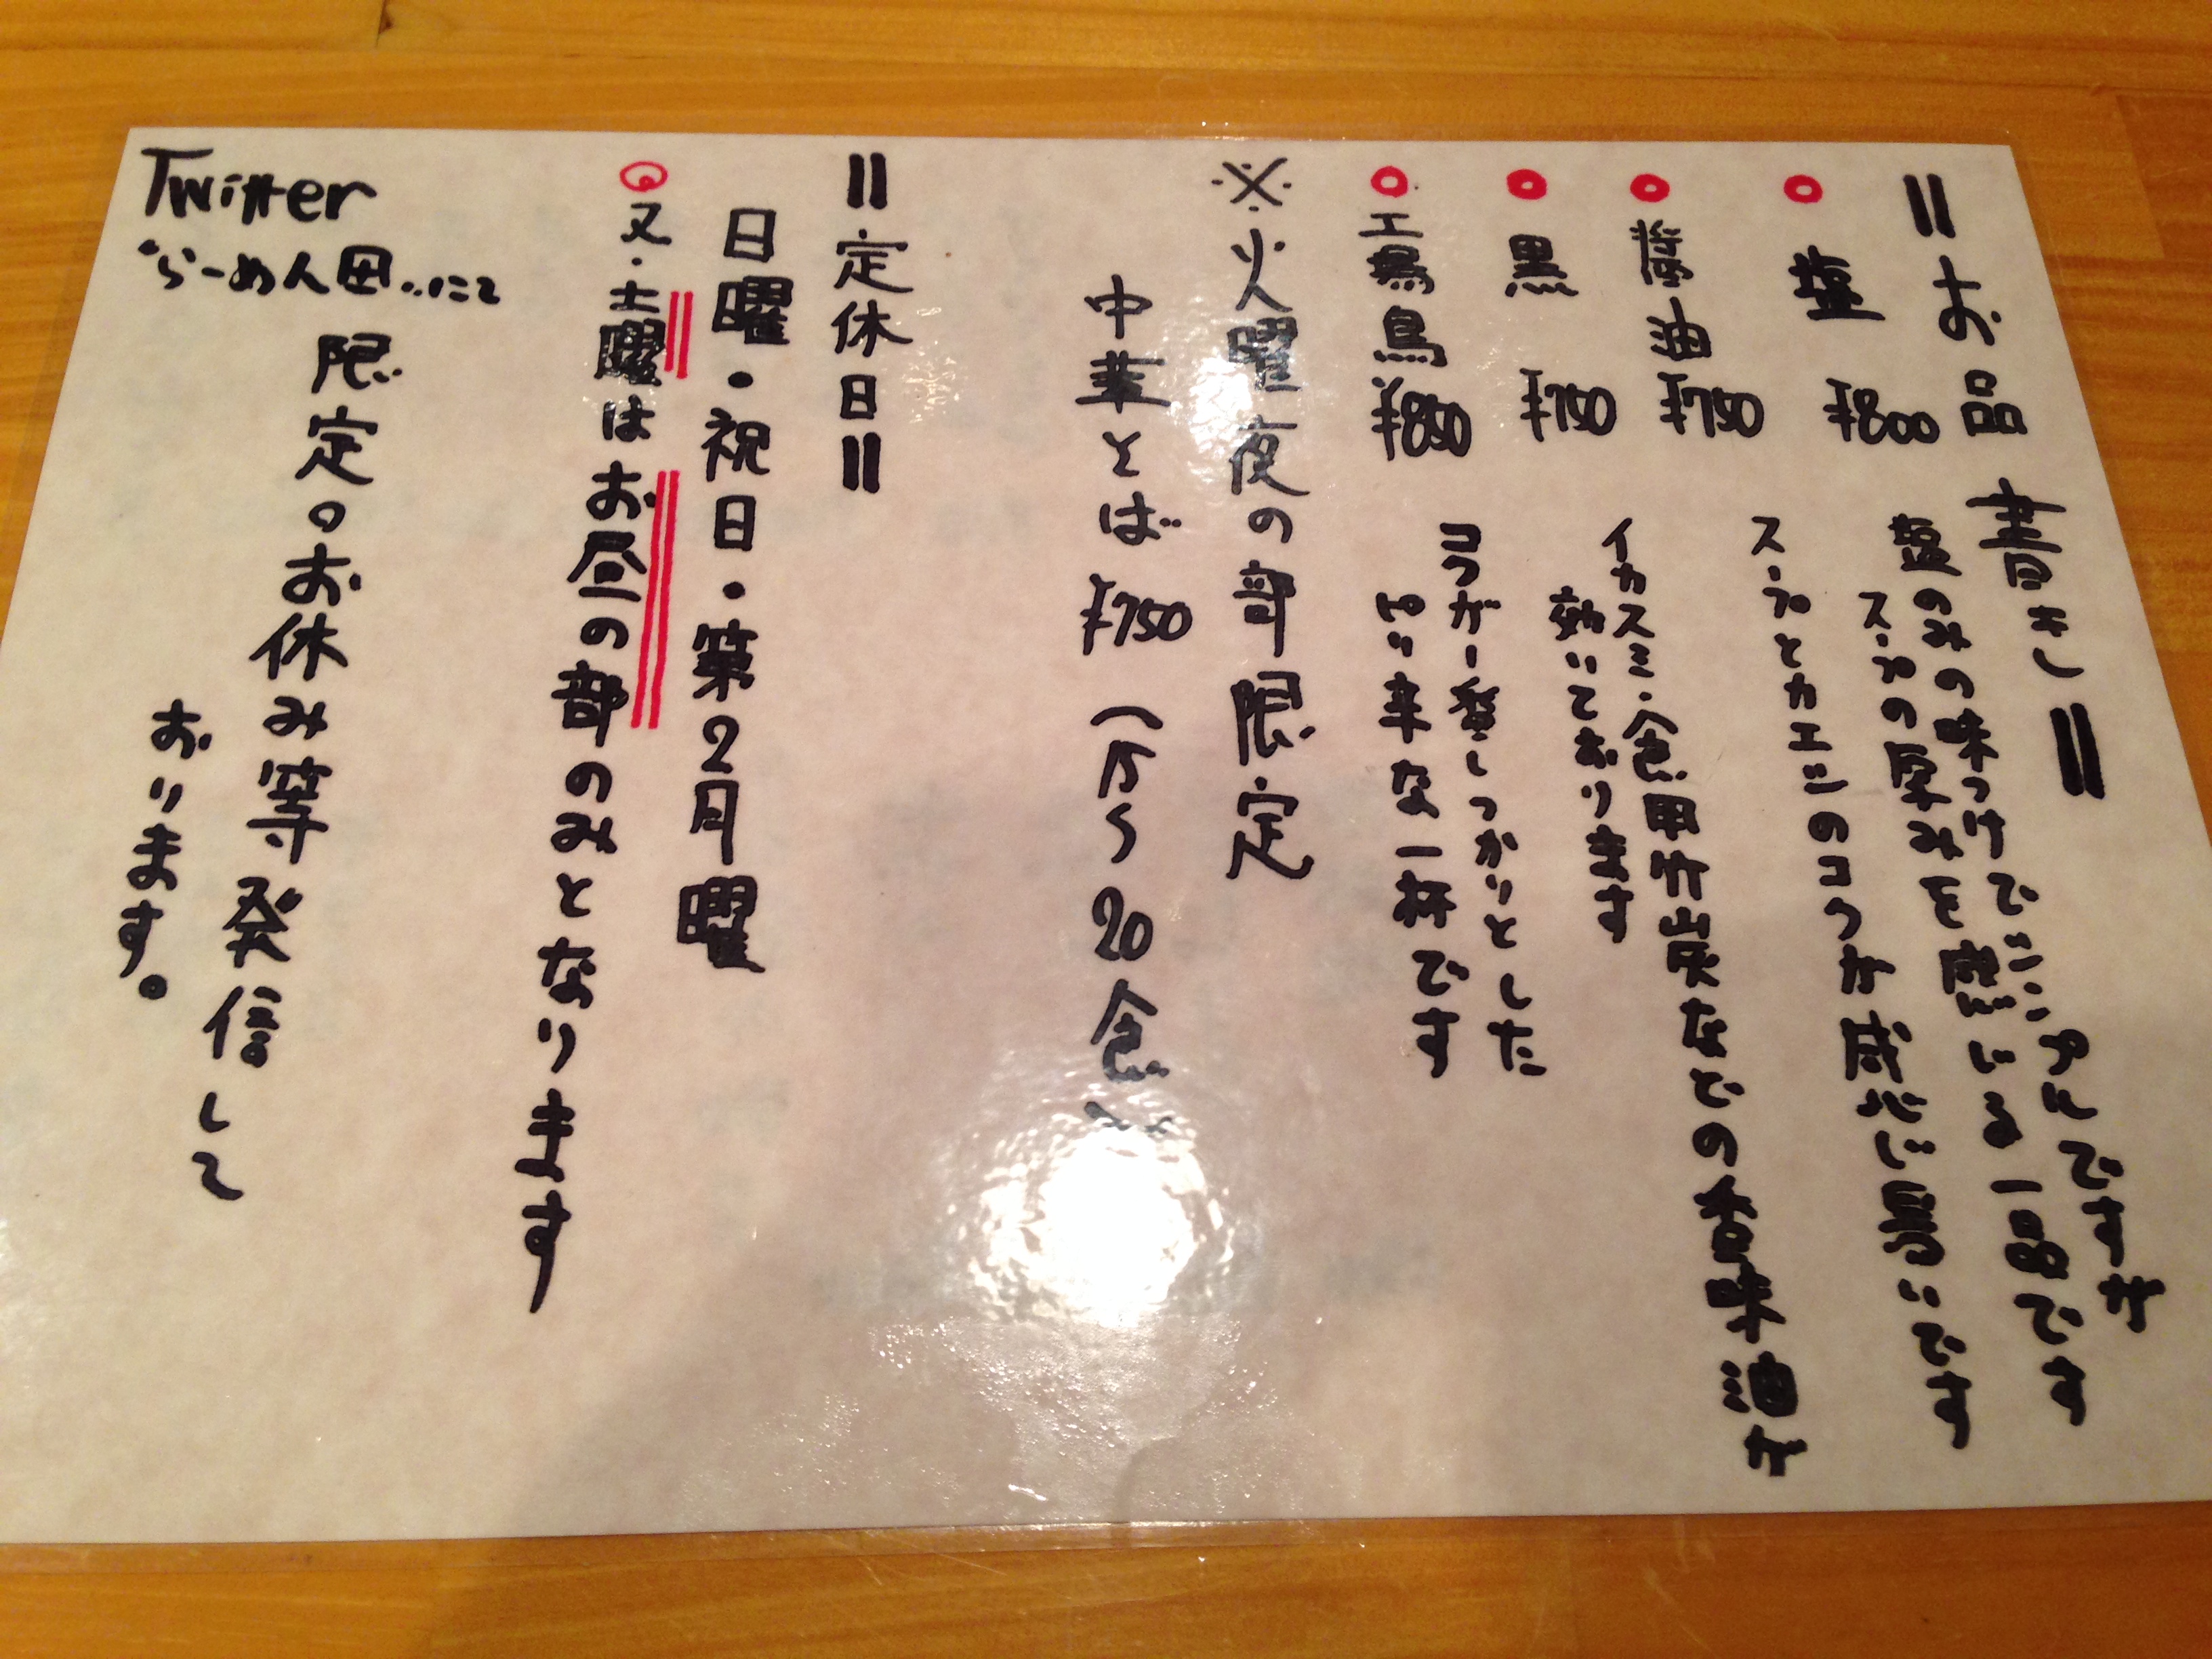 =お品書き=
○塩 ¥800
塩のみの味つけでシンプルですが
スープの厚みを感じる一品です
○醤油 ¥750
スープとカエシのコクが感じ易いです
○黒 ¥750
イカスミ・食用竹炭などの香味油が
効いております
○工鶏 ¥850
コクが一番しっかりとした
出来な一杯です
※火曜夜の部限定
中華とば ¥750 (15〜20食)
=定休日=
日曜・祝日・第2月曜
◎又・土曜はお昼の部のみとなります
Twitter
"らーめん田"にて
限定のお休み等発信して
おります。